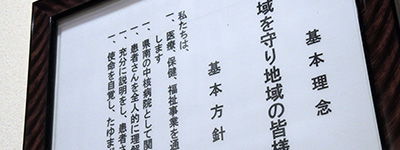 基本理念
域を守り地域の皆様
基本方針
私たちは、
一、医療、保健、福祉事業を通
します
一、県南の中核病院として関
一、患者さんを全人的に理解
一、充分に説明をし、患者さ
一、使命を自覚し、たゆま